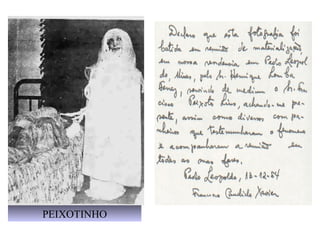 Declaro que esta fotografia foi
batida em reunião de materialização
em nossa residencia em Pedro Leopol
do, Minas, pelo Sr. Henrique Lomba
Ferraz, servindo de medium o Sr. Fran
cisco Peixoto Lins, achando-me pre-
sente, assim como diversos compa-
nheiros que testemunharam o fenomeno
e acompanharam a reunião em
todas as suas fases.
Pedro Leopoldo, 12-12-54
Francisco Candido Xavier
PEIXOTINHO